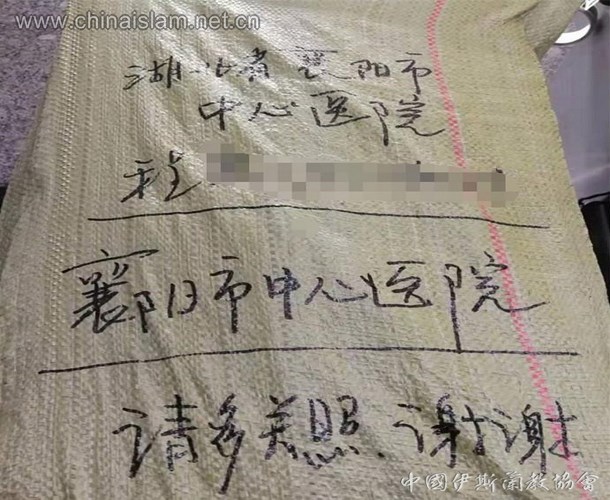 www.chinaislam.net.cn
湖北省襄阳市
中心医院
程
襄阳市中心医院
请多关照、谢谢
中國伊斯蘭教協會